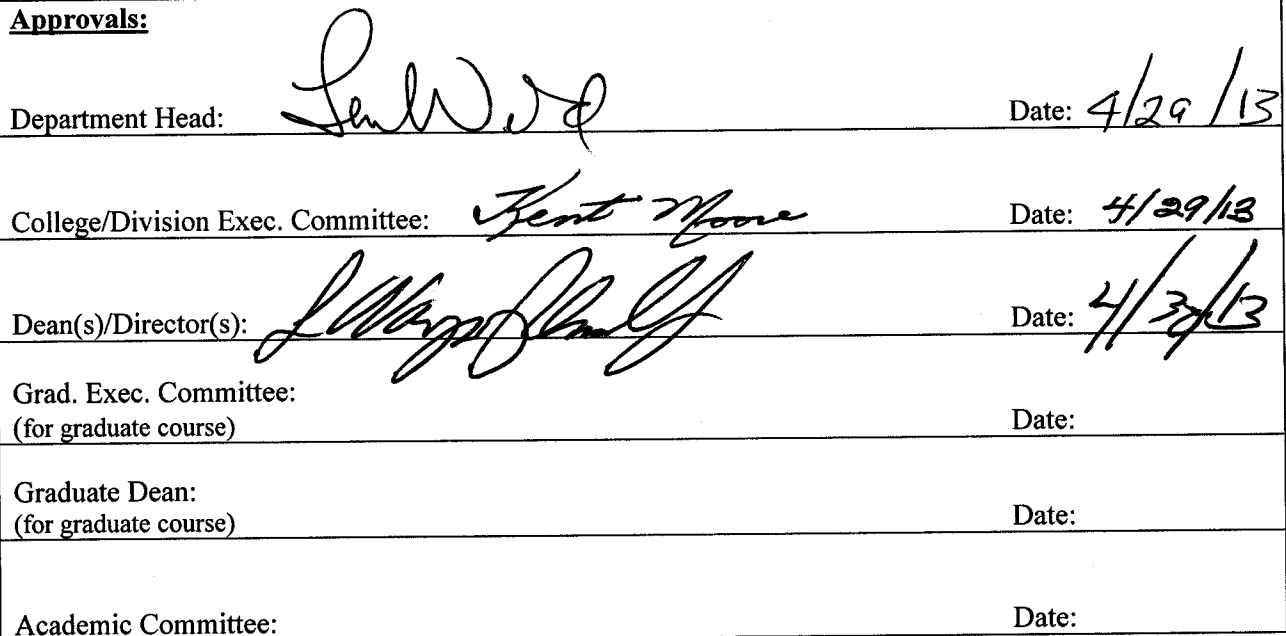 Approvals:
Department Head: Date: 4/29/13
College/Division Exec. Committee: Kent Moore Date: 4/29/13
Dean(s)/Director(s): Date: 4/30/13
Grad. Exec. Committee:
(for graduate course) Date:
Graduate Dean:
(for graduate course) Date:
Academic Committee: Date: